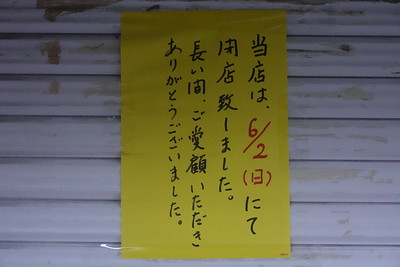 当店は、6/2(日)にて
閉店致しました。
長い間、ご愛顧いただき
ありがとうございました。